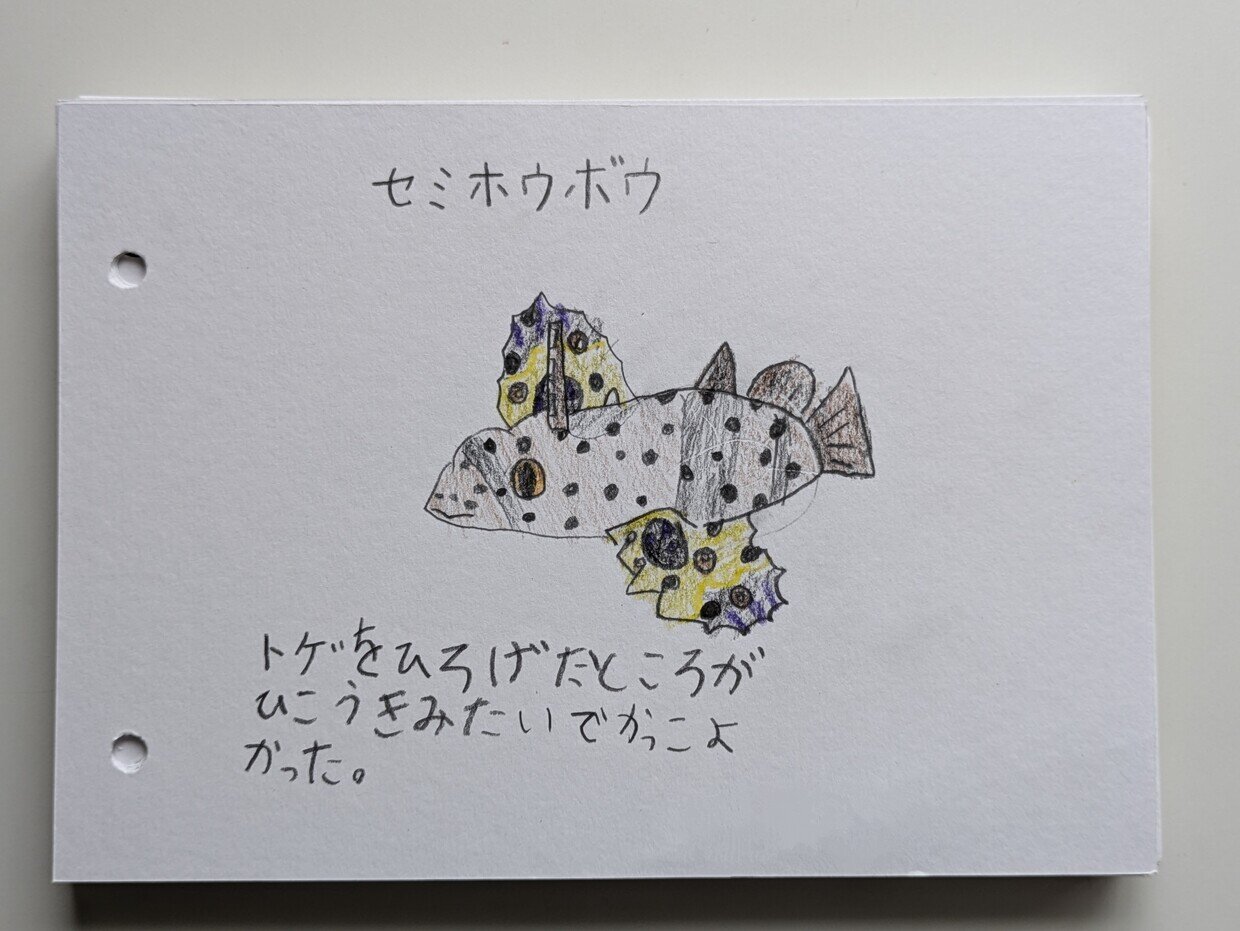 セミホウボウ
トゲをひろげたところが
ひこうきみたいでかっこよ
かった。